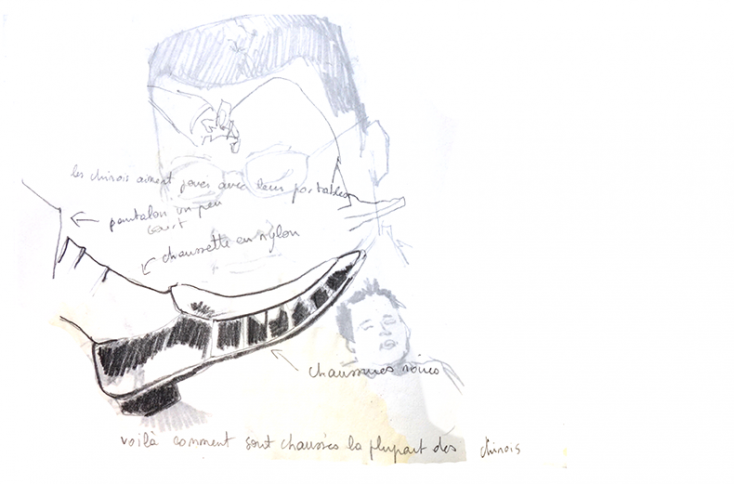 les chinois aiment jouer avec leurs portables
pantalon un peu
court
chaussette en nylon
chaussures noires
voilà comment sont chaussés la plupart des chinois